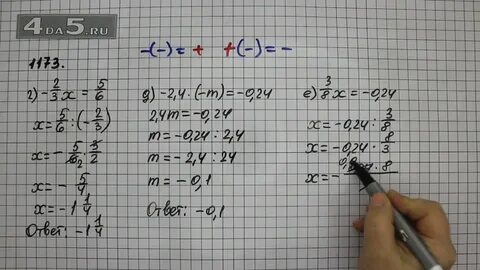 4DA5.RU
-(-) = + +(-) = -
1173.
г) -2/3 x = 5/6
x = 5/6 : (-2/3)
x = - 5/6 · 3/2
2
x = - 5/4
x = -1 1/4
Ответ: -1 1/4
д) -2,4 · (-m) = -0,24
2,4m = -0,24
m = -0,24 : 2,4
m = -2,4 : 24
m = -0,1
Ответ: -0,1
е) 3/8 x = -0,24
x = -0,24 : 3/8
x = -0,24 · 8/3
x = -
· 8